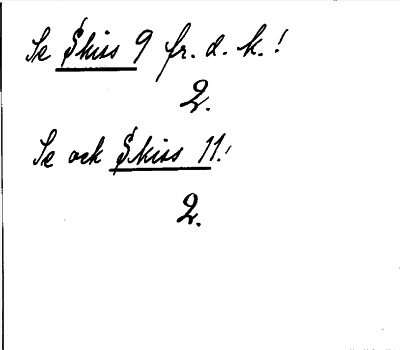 Se Skiss 9 fr. d. k.!
2.
Se ock Skiss 11!
2.